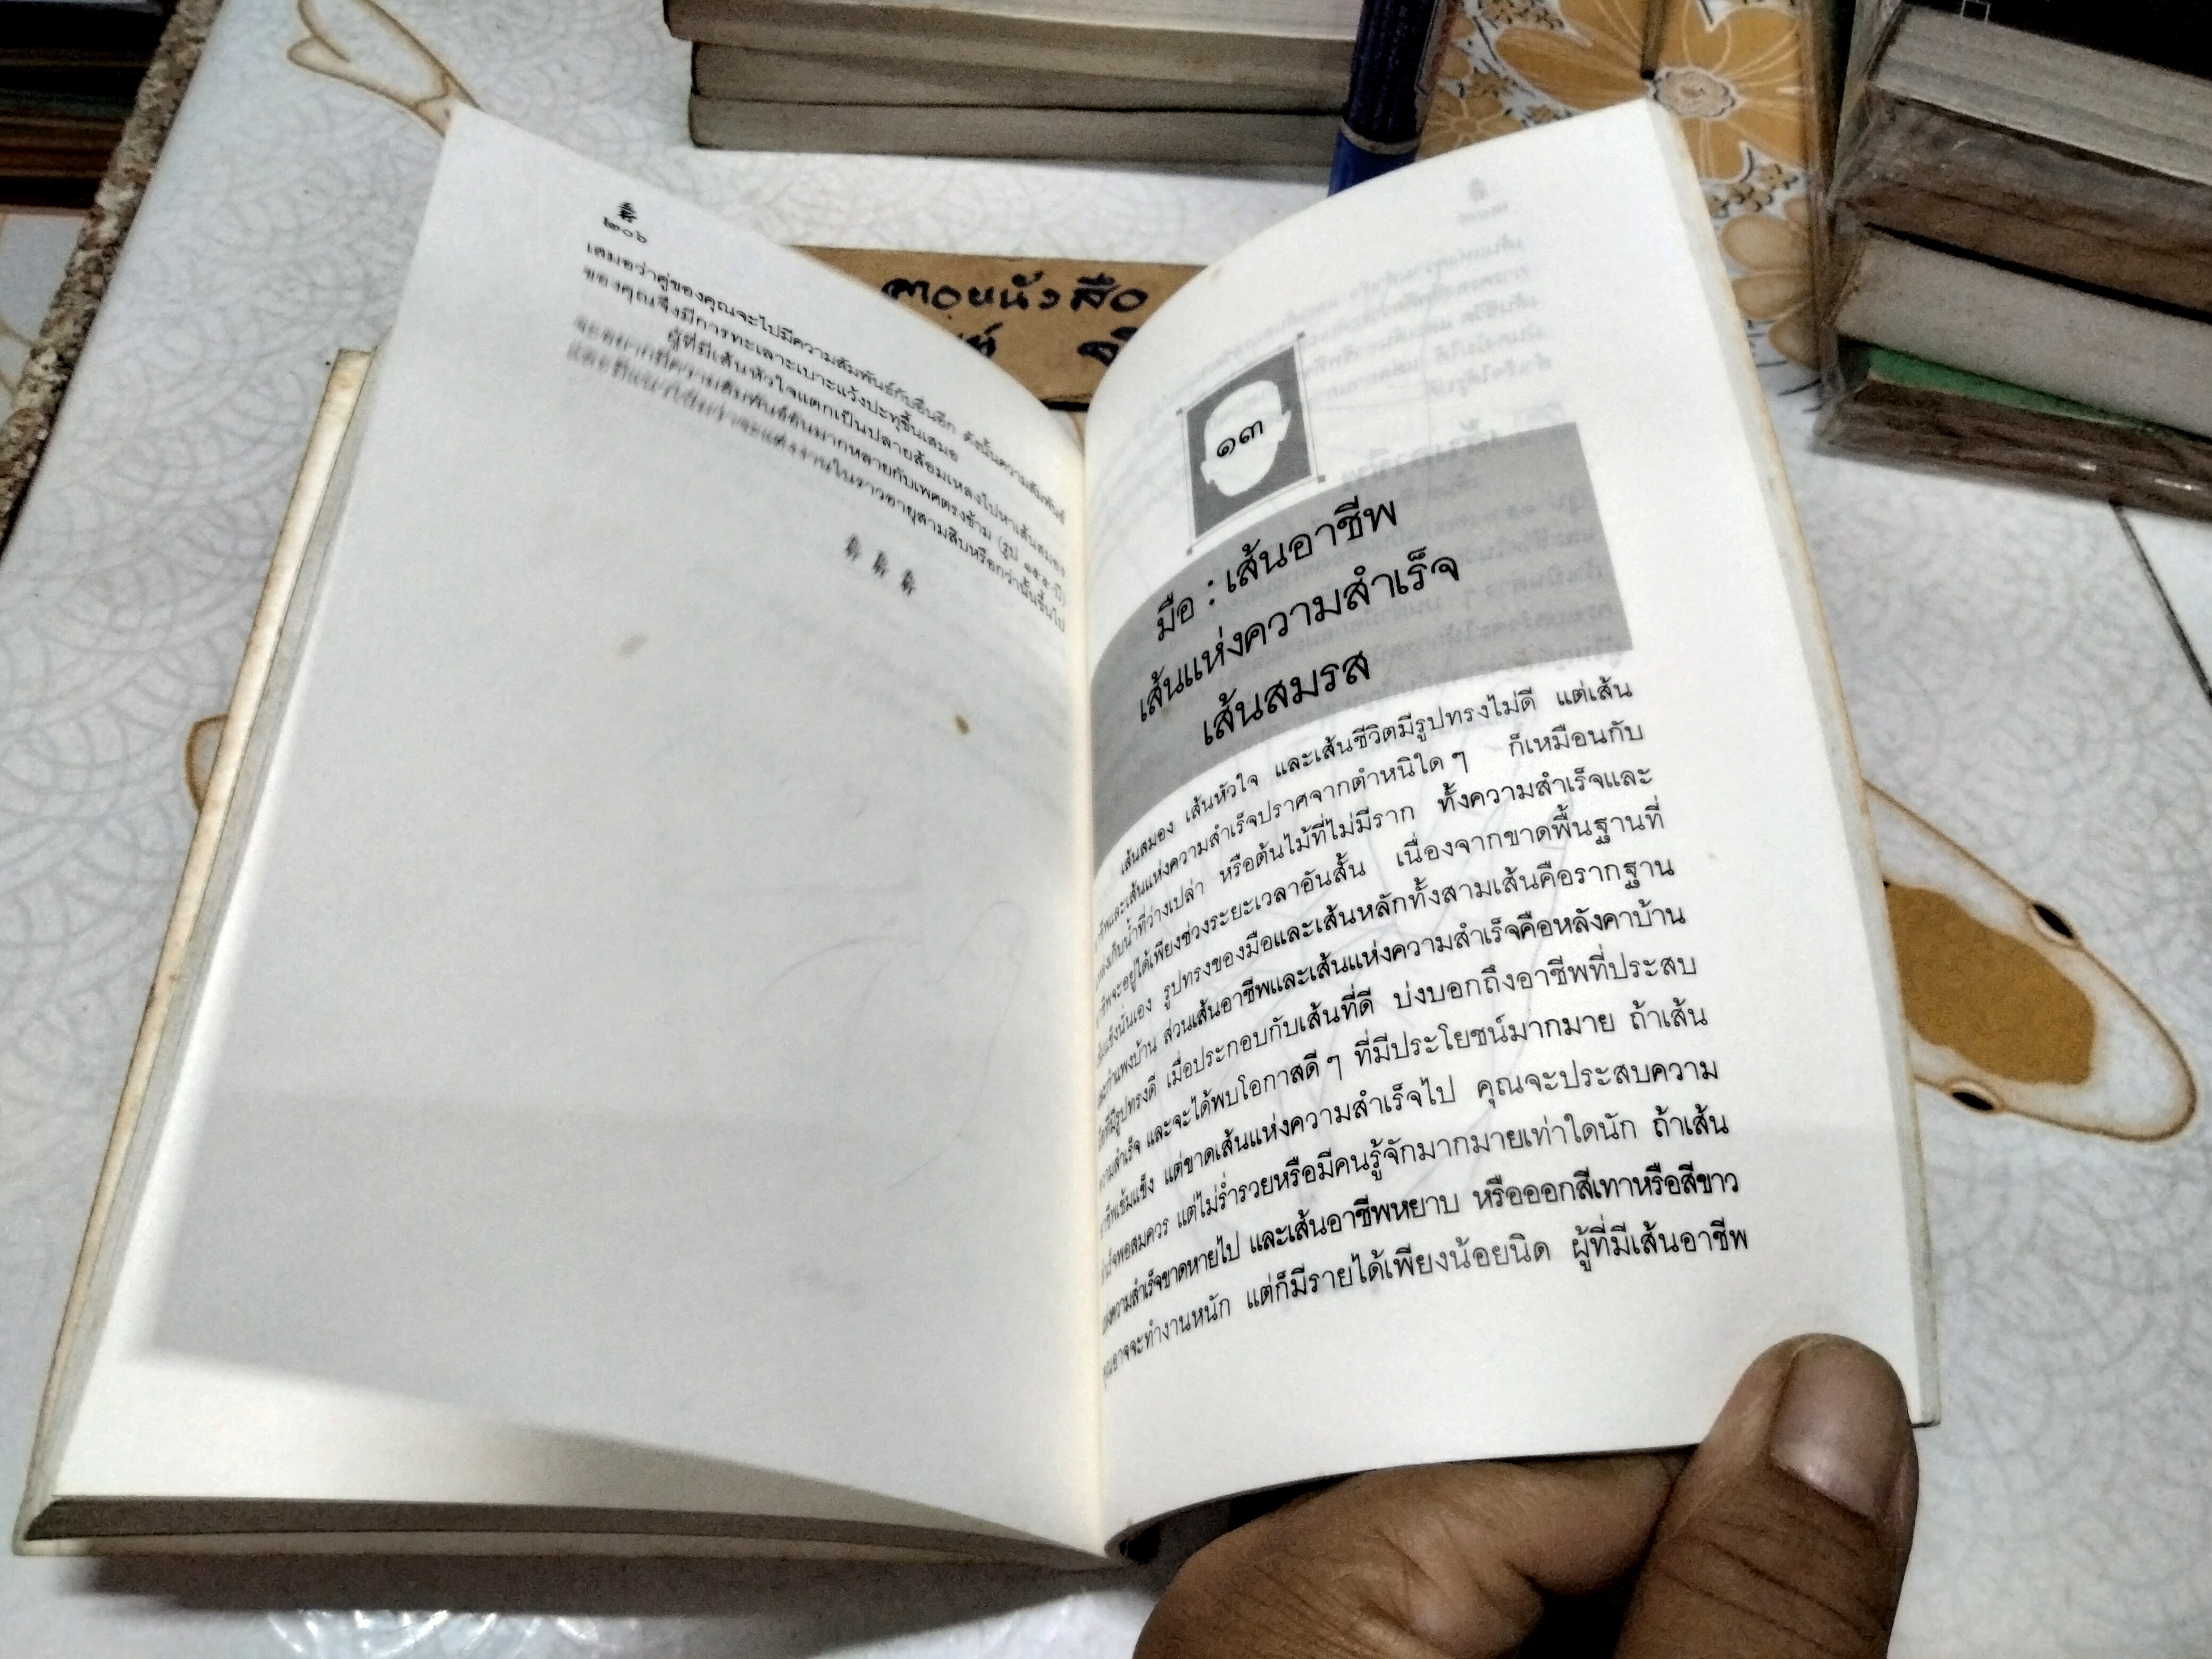 ๒๐๖
เสมอว่าคู่ของคุณจะไปมีความสัมพันธ์กับอื่นอีก ดังนั้นความสัมพันธ์
ของคุณจึงมีการทะเลาะเบาะแว้งปะทุขึ้นเสมอ
ผู้ที่มีเส้นหัวใจแตกเป็นปลายส้อมเหลงไปหาเส้นสมอง
จะอยากมีความสัมพันธ์อันมากหลายกับเพศตรงข้าม (รูป ๑๕๕-ปี)
และมีแนวโน้มว่าจะแต่งงานในราวอายุสามสิบหรือกว่านั้นขึ้นไป
ถอยหนังสือ
๑๓
มือ : เส้นอาชีพ
เส้นแห่งความสำเร็จ
เส้นสมรส
เส้นสมอง เส้นหัวใจ และเส้นชีวิตมีรูปทรงไม่ดี แต่เส้น
อาชีพและเส้นแห่งความสำเร็จปราศจากตำหนิใด ๆ ก็เหมือนกับ
เก็บน้ำที่ว่างเปล่า หรือต้นไม้ที่ไม่มีราก ทั้งความสำเร็จและ
อาชีพจะอยู่ได้เพียงช่วงระยะเวลาอันสั้น เนื่องจากขาดพื้นฐานที่
แข็งนั่นเอง รูปทรงของมือและเส้นหลักทั้งสามเส้นคือรากฐาน
และกำแพงบ้าน ส่วนเส้นอาชีพและเส้นแห่งความสำเร็จคือหลังคาบ้าน
ที่มีรูปทรงดี เมื่อประกอบกับเส้นที่ดี บ่งบอกถึงอาชีพที่ประสบ
ความสำเร็จ และจะได้พบโอกาสดี ๆ ที่มีประโยชน์มากมาย ถ้าเส้น
อาชีพเข้มแข็ง แต่ขาดเส้นแห่งความสำเร็จไป คุณจะประสบความ
สำเร็จพอสมควร แต่ไม่ร่ำรวยหรือมีคนรู้จักมากมายเท่าใดนัก ถ้าเส้น
แห่งความสำเร็จขาดหายไป และเส้นอาชีพหยาบ หรือออกสีเทาหรือสีขาว
คุณอาจจะทำงานหนัก แต่ก็มีรายได้เพียงน้อยนิด ผู้ที่มีเส้นอาชีพ